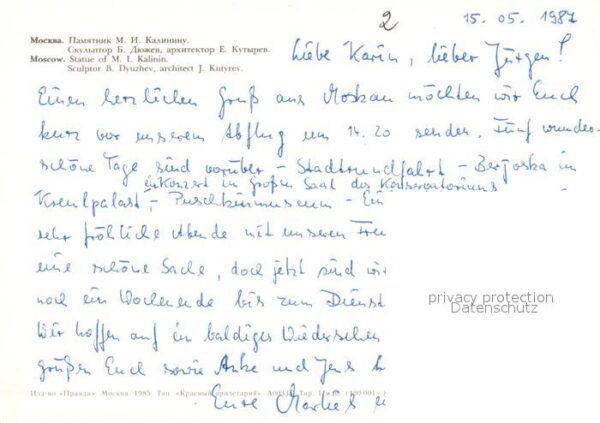 2
15. 05. 1987
Москва. Памятник М. И. Калинину.
Скульптор Б. Дюжев, архитектор Е. Кутырев.
Moscow. Statue of M. I. Kalinin.
Sculptor B. Dyuzhev, architect J. Kutyrev.
Liebe Karin, lieber Jürgen!
Einen herzlichen Gruß aus Moskau möchten wir Euch
kurz vor unserem Abflug um 14.20 senden. Fünf wunder-
schöne Tage sind vorüber - Stadtrundfahrt - Berjoska im
ein Konzert im Großen Saal des Konservatoriums -
Kremlpalast, - Puschkinmuseum - Ein
sehr fröhliche Abende mit unseren Freu
eine schöne Sache, doch jetzt sind wir
noch ein Wochenende bis zum Dienst
privacy protection
Datenschutz
Wir hoffen auf ein baldiges Wiedersehen
grüßen Euch sowie Anke und Jens h
Изд-во «Правда» Москва 1985 Тип. «Красный пролетарий»
Eure